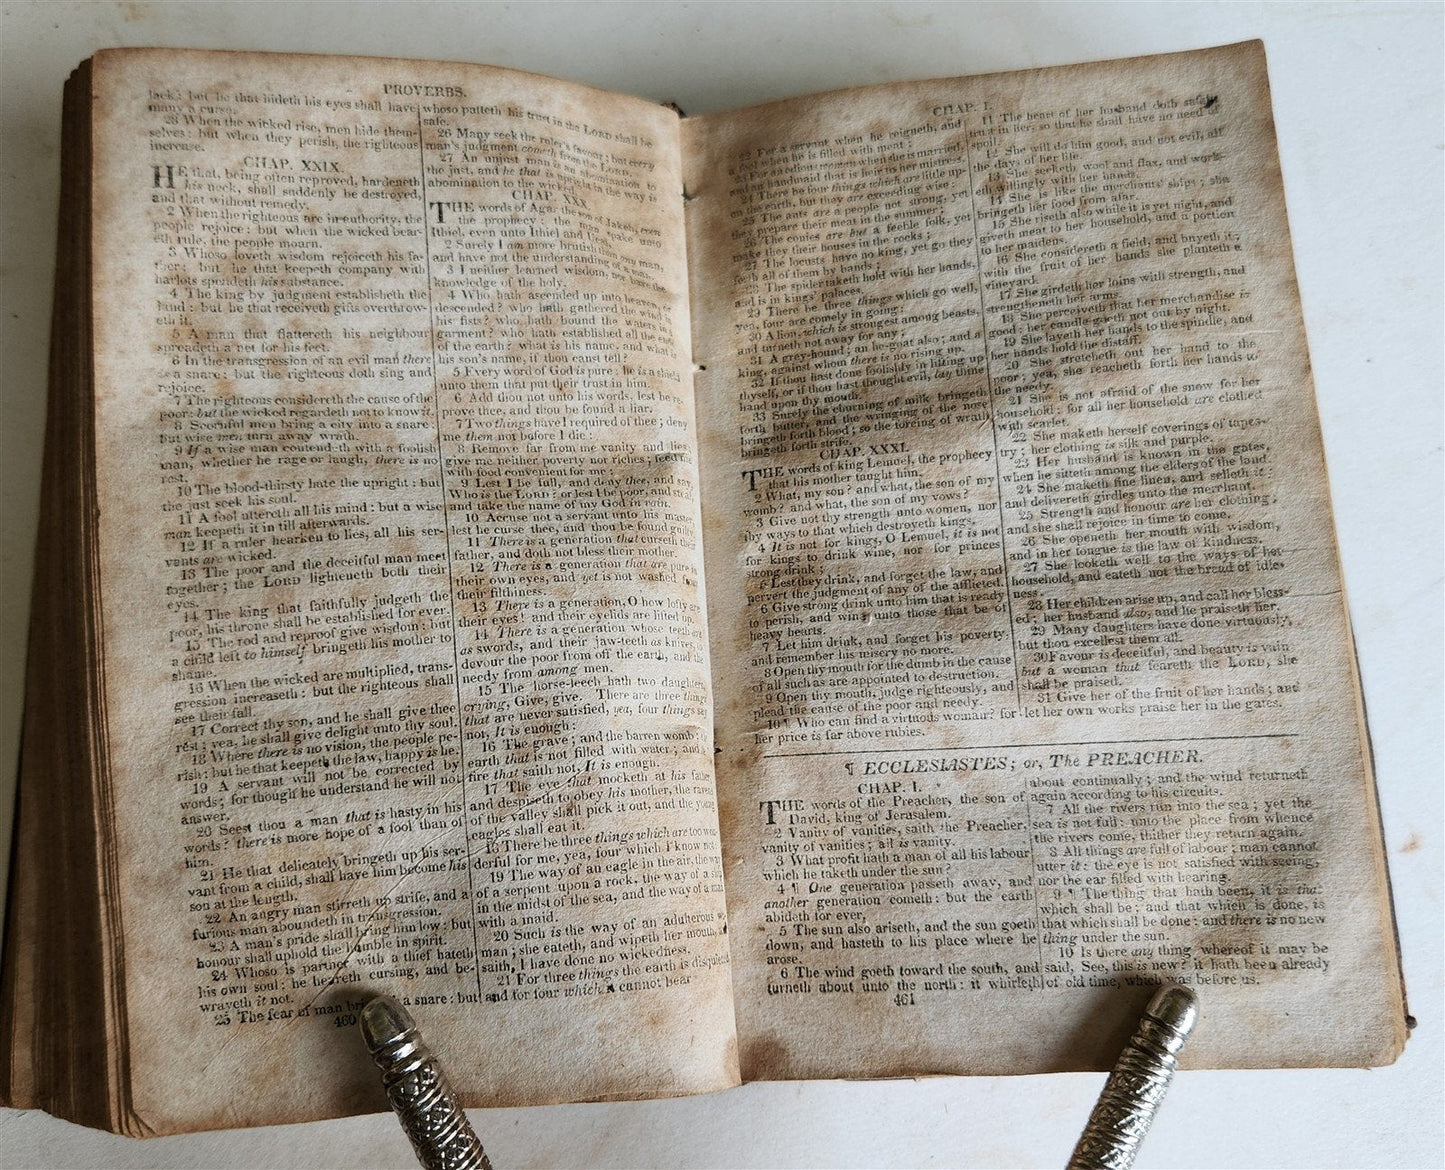 PROVERBS.
lack: but he that hideth his eyes shall have
many a curse.
28 When the wicked rise, men hide them-
selves: but when they perish, the righteous
increase.
CHAP. XXIX.
HE that, being often reproved, hardeneth
his neck, shall suddenly be destroyed,
and that without remedy.
2 When the righteous are in authority, the
people rejoice: but when the wicked bear-
eth rule, the people mourn.
3 Whoso loveth wisdom rejoiceth his fa-
ther: but he that keepeth company with
harlots spendeth his substance.
4 The king by judgment establisheth the
land: but he that receiveth gifts overthrow-
eth it.
5 A man that flattereth his neighbour
spreadeth a net for his feet.
6 In the transgression of an evil man there
is a snare: but the righteous doth sing and
rejoice.
7 The righteous considereth the cause of the
poor: but the wicked regardeth not to know it.
8 Scornful men bring a city into a snare:
but wise men turn away wrath.
9 If a wise man contendeth with a foolish
man, whether he rage or laugh, there is no
rest.
10 The blood-thirsty hate the upright: but
the just seek his soul.
11 A fool uttereth all his mind: but a wise
man keepeth it in till afterwards.
12 If a ruler hearken to lies, all his ser-
vants are wicked.
13 The poor and the deceitful man meet
together; the LORD lighteneth both their
eyes.
14 The king that faithfully judgeth the
poor, his throne shall be established for ever.
15 The rod and reproof give wisdom: but
a child left to himself bringeth his mother to
shame.
16 When the wicked are multiplied, trans-
gression increaseth: but the righteous shall
see their fall.
17 Correct thy son, and he shall give thee
rest; yea, he shall give delight unto thy soul.
18 Where there is no vision, the people pe-
rish: but he that keepeth the law, happy is he.
19 A servant will not be corrected by
words; for though he understand he will not
answer.
20 Seest thou a man that is hasty in his
words? there is more hope of a fool than of
him.
21 He that delicately bringeth up his ser-
vant from a child, shall have him become his
son at the length.
22 An angry man stirreth up strife, and a
furious man aboundeth in transgression.
23 A man's pride shall bring him low: but
honour shall uphold the humble in spirit.
24 Whoso is partner with a thief hateth
his own soul: he heareth cursing, and be-
wrayeth it not.
25 The fear of man a snare: but
460
whoso putteth his trust in the LORD shall be
safe.
26 Many seek the ruler's favour; but every
man's judgment cometh from the LORD.
27 An unjust man is an abomination to
the just, and he that is upright in the way is
abomination to the wicked.
CHAP. XXX.
THE words of Agar the son of Jakeh, even
the prophecy: the man spake unto
Ithiel, even unto Ithiel and Ucal,
2 Surely I am more brutish than any man,
and have not the understanding of a man.
3 I neither learned wisdom, nor have the
knowledge of the holy.
4 Who hath ascended up into heaven, or
descended? who hath gathered the wind in
his fists? who hath bound the waters in a
garment? who hath established all the ends
of the earth? what is his name, and what is
his son's name, if thou canst tell?
5 Every word of God is pure: he is a shield
unto them that put their trust in him.
6 Add thou not unto his words, lest he re-
prove thee, and thou be found a liar.
7 Two things have I required of thee; deny
me them not before I die:
8 Remove far from me vanity and lies;
give me neither poverty nor riches; feed me
with food convenient for me:
9 Lest I be full, and deny thee, and say,
Who is the LORD? or lest I be poor, and steal,
and take the name of my God in vain.
10 Accuse not a servant unto his master,
lest he curse thee, and thou be found guilty.
11 There is a generation that curseth their
father, and doth not bless their mother.
12 There is a generation that are pure in
their own eyes, and yet is not washed from
their filthiness.
13 There is a generation, O how lofty are
their eyes! and their eyelids are lifted up.
14 There is a generation whose teeth are
as swords, and their jaw-teeth as knives, to
devour the poor from off the earth, and the
needy from among men.
15 The horse-leech hath two daughters,
crying, Give, give. There are three things
that are never satisfied, yea, four things say
not, It is enough:
16 The grave; and the barren womb; the
earth that is not filled with water; and the
fire that saith not, It is enough.
17 The eye that mocketh at his father,
and despiseth to obey his mother, the ravens
of the valley shall pick it out, and the young
eagles shall eat it.
18 There be three things which are too won-
derful for me, yea, four which I know not:
19 The way of an eagle in the air, the way
of a serpent upon a rock, the way of a ship
in the midst of the sea, and the way of a man
with a maid.
20 Such is the way of an adulterous wo-
man; she eateth, and wipeth her mouth, and
saith, I have done no wickedness.
21 For three things the earth is disquieted,
and for four which it cannot bear
CHAP. I.
22 For a servant when he reigneth, and
a fool when he is filled with meat;
23 For an odious woman when she is married,
and an handmaid that is heir to her mistress.
24 There be four things which are little up-
on the earth, but they are exceeding wise:
25 The ants are a people not strong, yet
they prepare their meat in the summer;
26 The conies are but a feeble folk, yet
make they their houses in the rocks;
27 The locusts have no king, yet go they
forth all of them by bands;
28 The spider taketh hold with her hands,
and is in kings' palaces.
29 There be three things which go well,
yea, four are comely in going:
30 A lion, which is strongest among beasts,
and turneth not away for any;
31 A grey-hound; an he-goat also; and a
king, against whom there is no rising up.
32 If thou hast done foolishly in lifting up
thyself, or if thou hast thought evil, lay thine
hand upon thy mouth.
33 Surely the churning of milk bringeth
forth butter, and the wringing of the nose
bringeth forth blood; so the forcing of wrath
bringeth forth strife.
CHAP. XXXI.
THE words of king Lemuel, the prophecy
that his mother taught him.
2 What, my son? and what, the son of my
womb? and what, the son of my vows?
3 Give not thy strength unto women, nor
thy ways to that which destroyeth kings.
4 It is not for kings, O Lemuel, it is not
for kings to drink wine, nor for princes
strong drink;
5 Lest they drink, and forget the law, and
pervert the judgment of any of the afflicted.
6 Give strong drink unto him that is ready
to perish, and wine unto those that be of
heavy hearts.
7 Let him drink, and forget his poverty,
and remember his misery no more.
8 Open thy mouth for the dumb in the cause
of all such as are appointed to destruction.
9 Open thy mouth, judge righteously, and
plead the cause of the poor and needy.
10 ¶ Who can find a virtuous woman? for
her price is far above rubies.
11 The heart of her husband doth safely
trust in her, so that he shall have no need of
spoil.
12 She will do him good, and not evil, all
the days of her life.
13 She seeketh wool and flax, and work-
eth willingly with her hands.
14 She is like the merchants' ships; she
bringeth her food from afar.
15 She riseth also while it is yet night, and
giveth meat to her household, and a portion
to her maidens.
16 She considereth a field, and buyeth it;
with the fruit of her hands she planteth a
vineyard.
17 She girdeth her loins with strength, and
strengtheneth her arms.
18 She perceiveth that her merchandise is
good: her candle goeth not out by night.
19 She layeth her hands to the spindle, and
her hands hold the distaff.
20 She stretcheth out her hand to the
poor; yea, she reacheth forth her hands to
the needy.
21 She is not afraid of the snow for her
household: for all her household are clothed
with scarlet.
22 She maketh herself coverings of tapes-
try; her clothing is silk and purple.
23 Her husband is known in the gates,
when he sitteth among the elders of the land.
24 She maketh fine linen, and selleth it;
and delivereth girdles unto the merchant.
25 Strength and honour are her clothing;
and she shall rejoice in time to come.
26 She openeth her mouth with wisdom,
and in her tongue is the law of kindness.
27 She looketh well to the ways of her
household, and eateth not the bread of idle-
ness.
28 Her children arise up, and call her bless-
ed; her husband also, and he praiseth her.
29 Many daughters have done virtuously,
but thou excellest them all.
30 Favour is deceitful, and beauty is vain
but a woman that feareth the LORD, she
shall be praised.
31 Give her of the fruit of her hands; and
let her own works praise her in the gates.
¶ ECCLESIASTES; or, The PREACHER.
CHAP. I.
THE words of the Preacher, the son of
David, king of Jerusalem.
2 Vanity of vanities, saith the Preacher,
vanity of vanities; all is vanity.
3 What profit hath a man of all his labour
which he taketh under the sun?
4 ¶ One generation passeth away, and
another generation cometh: but the earth
abideth for ever,
5 The sun also ariseth, and the sun goeth
down, and hasteth to his place where he
arose.
6 The wind goeth toward the south, and
turneth about unto the north: it whirleth
about continually; and the wind returneth
again according to his circuits.
7 All the rivers run into the sea; yet the
sea is not full: unto the place from whence
the rivers come, thither they return again.
8 All things are full of labour; man cannot
utter it: the eye is not satisfied with seeing,
nor the ear filled with hearing.
9 ¶ The thing that hath been, it is that
which shall be; and that which is done, is
that which shall be done: and there is no new
thing under the sun.
10 Is there any thing whereof it may be
said, See, this is new? it hath been already
of old time, which was before us.
461